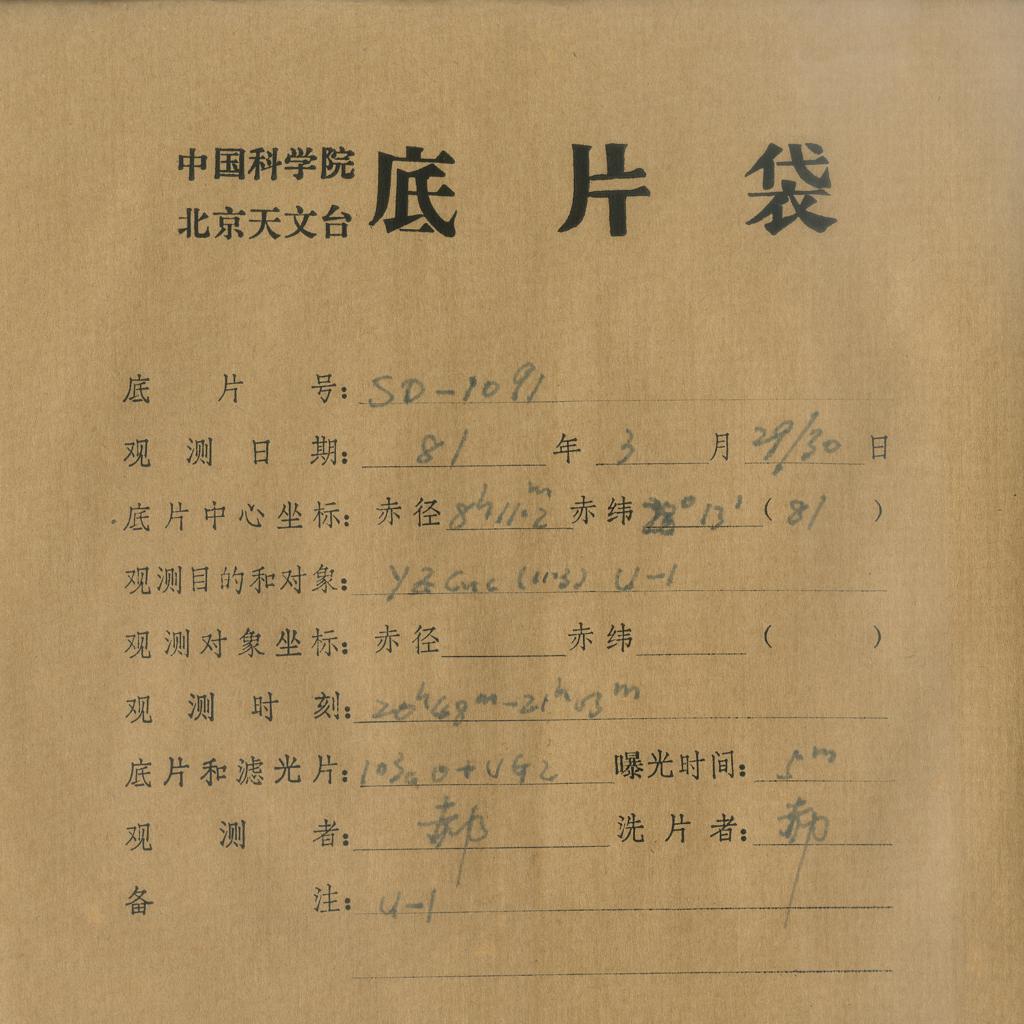 中国科学院
北京天文台
底片袋
底片号: SD-1091
观测日期: 81年3月29/30日
底片中心坐标: 赤径 8h11.2m 赤纬 28°13' (81)
观测目的和对象: YZ Cnc (113) U-1
观测对象坐标: 赤径 赤纬 ( )
观测时刻: 20h48m-21h03m
底片和滤光片: 103aO+UG2 曝光时间: 5m
观测者: 郝 洗片者: 郝
备注: U-1